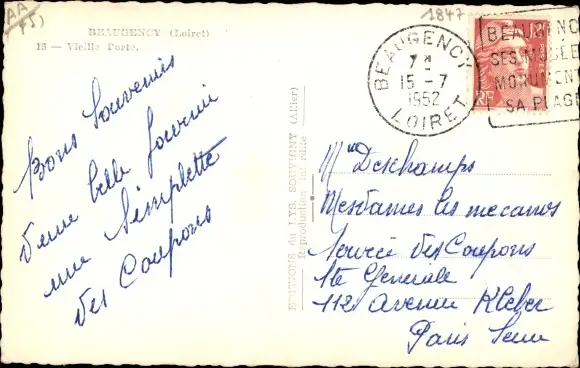 BEAUGENCY (Loiret)
13 — Vieille Porte.
Bons Souvenirs
d'une belle journée
une Simplette
des Coupons
EDITIONS du LYS, SOUVIGNY (Allier)
Reproduction interdite
1847
BEAUGENCY
15 - 7
1952
LOIRET
RF
BEAUGENC
SES MUSÉE
MONUMENT
SA PLAGE
Mme Deschamps
Mesdames les mecanos
Service des Coupons
Sté Générale
112 avenue Kleber
Paris Seine